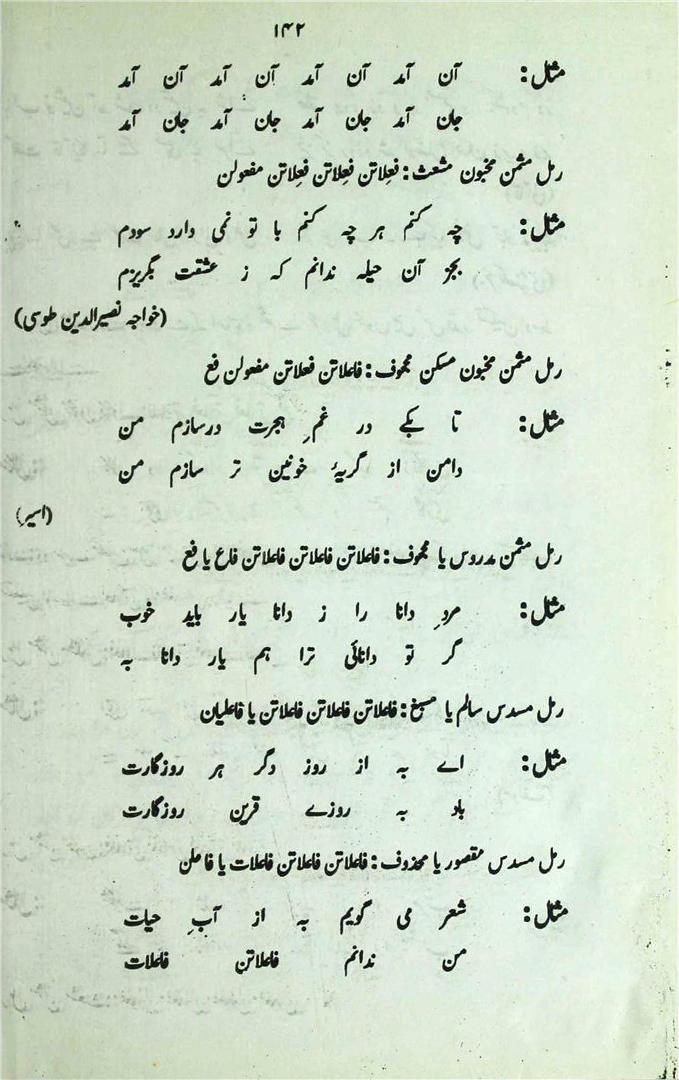 ۱۴۲
مثال: آن آمد آن آمد آن آمد آن آمد
جان آمد جان آمد جان آمد جان آمد
رمل مثمن مخبون مشعث: فعِلاتن فعِلاتن فعِلاتن مفعولن
مثال: چہ کنم ہر چہ کنم با تو نمی دارد سودم
بجز آن حیلہ ندانم کہ ز عشقت بگریزم
(خواجہ نصیرالدین طوسی)
رمل مثمن مخبون مسکن مجحوف: فاعلاتن فعلاتن مفعولن فع
مثال: تا بکے در غمِ ہجرت درسازم من
دامن از گریۂ خونین تر سازم من
(اسیر)
رمل مثمن مدروس یا مجحوف: فاعلاتن فاعلاتن فاعلاتن فاع یا فع
مثال: مردِ دانا را ز دانا یار باید خوب
گر تو دانائی ترا ہم یار دانا بہ
رمل مسدس سالم یا مسبغ: فاعلاتن فاعلاتن فاعلاتن یا فاعلیان
مثال: اے بہ از روز دگر ہر روزگارت
باد بہ روزے قرین روزگارت
رمل مسدس مقصور یا محذوف: فاعلاتن فاعلاتن فاعلات یا فاعلن
مثال: شعر می گویم بہ از آبِ حیات
من ندانم فاعلاتن فاعلات